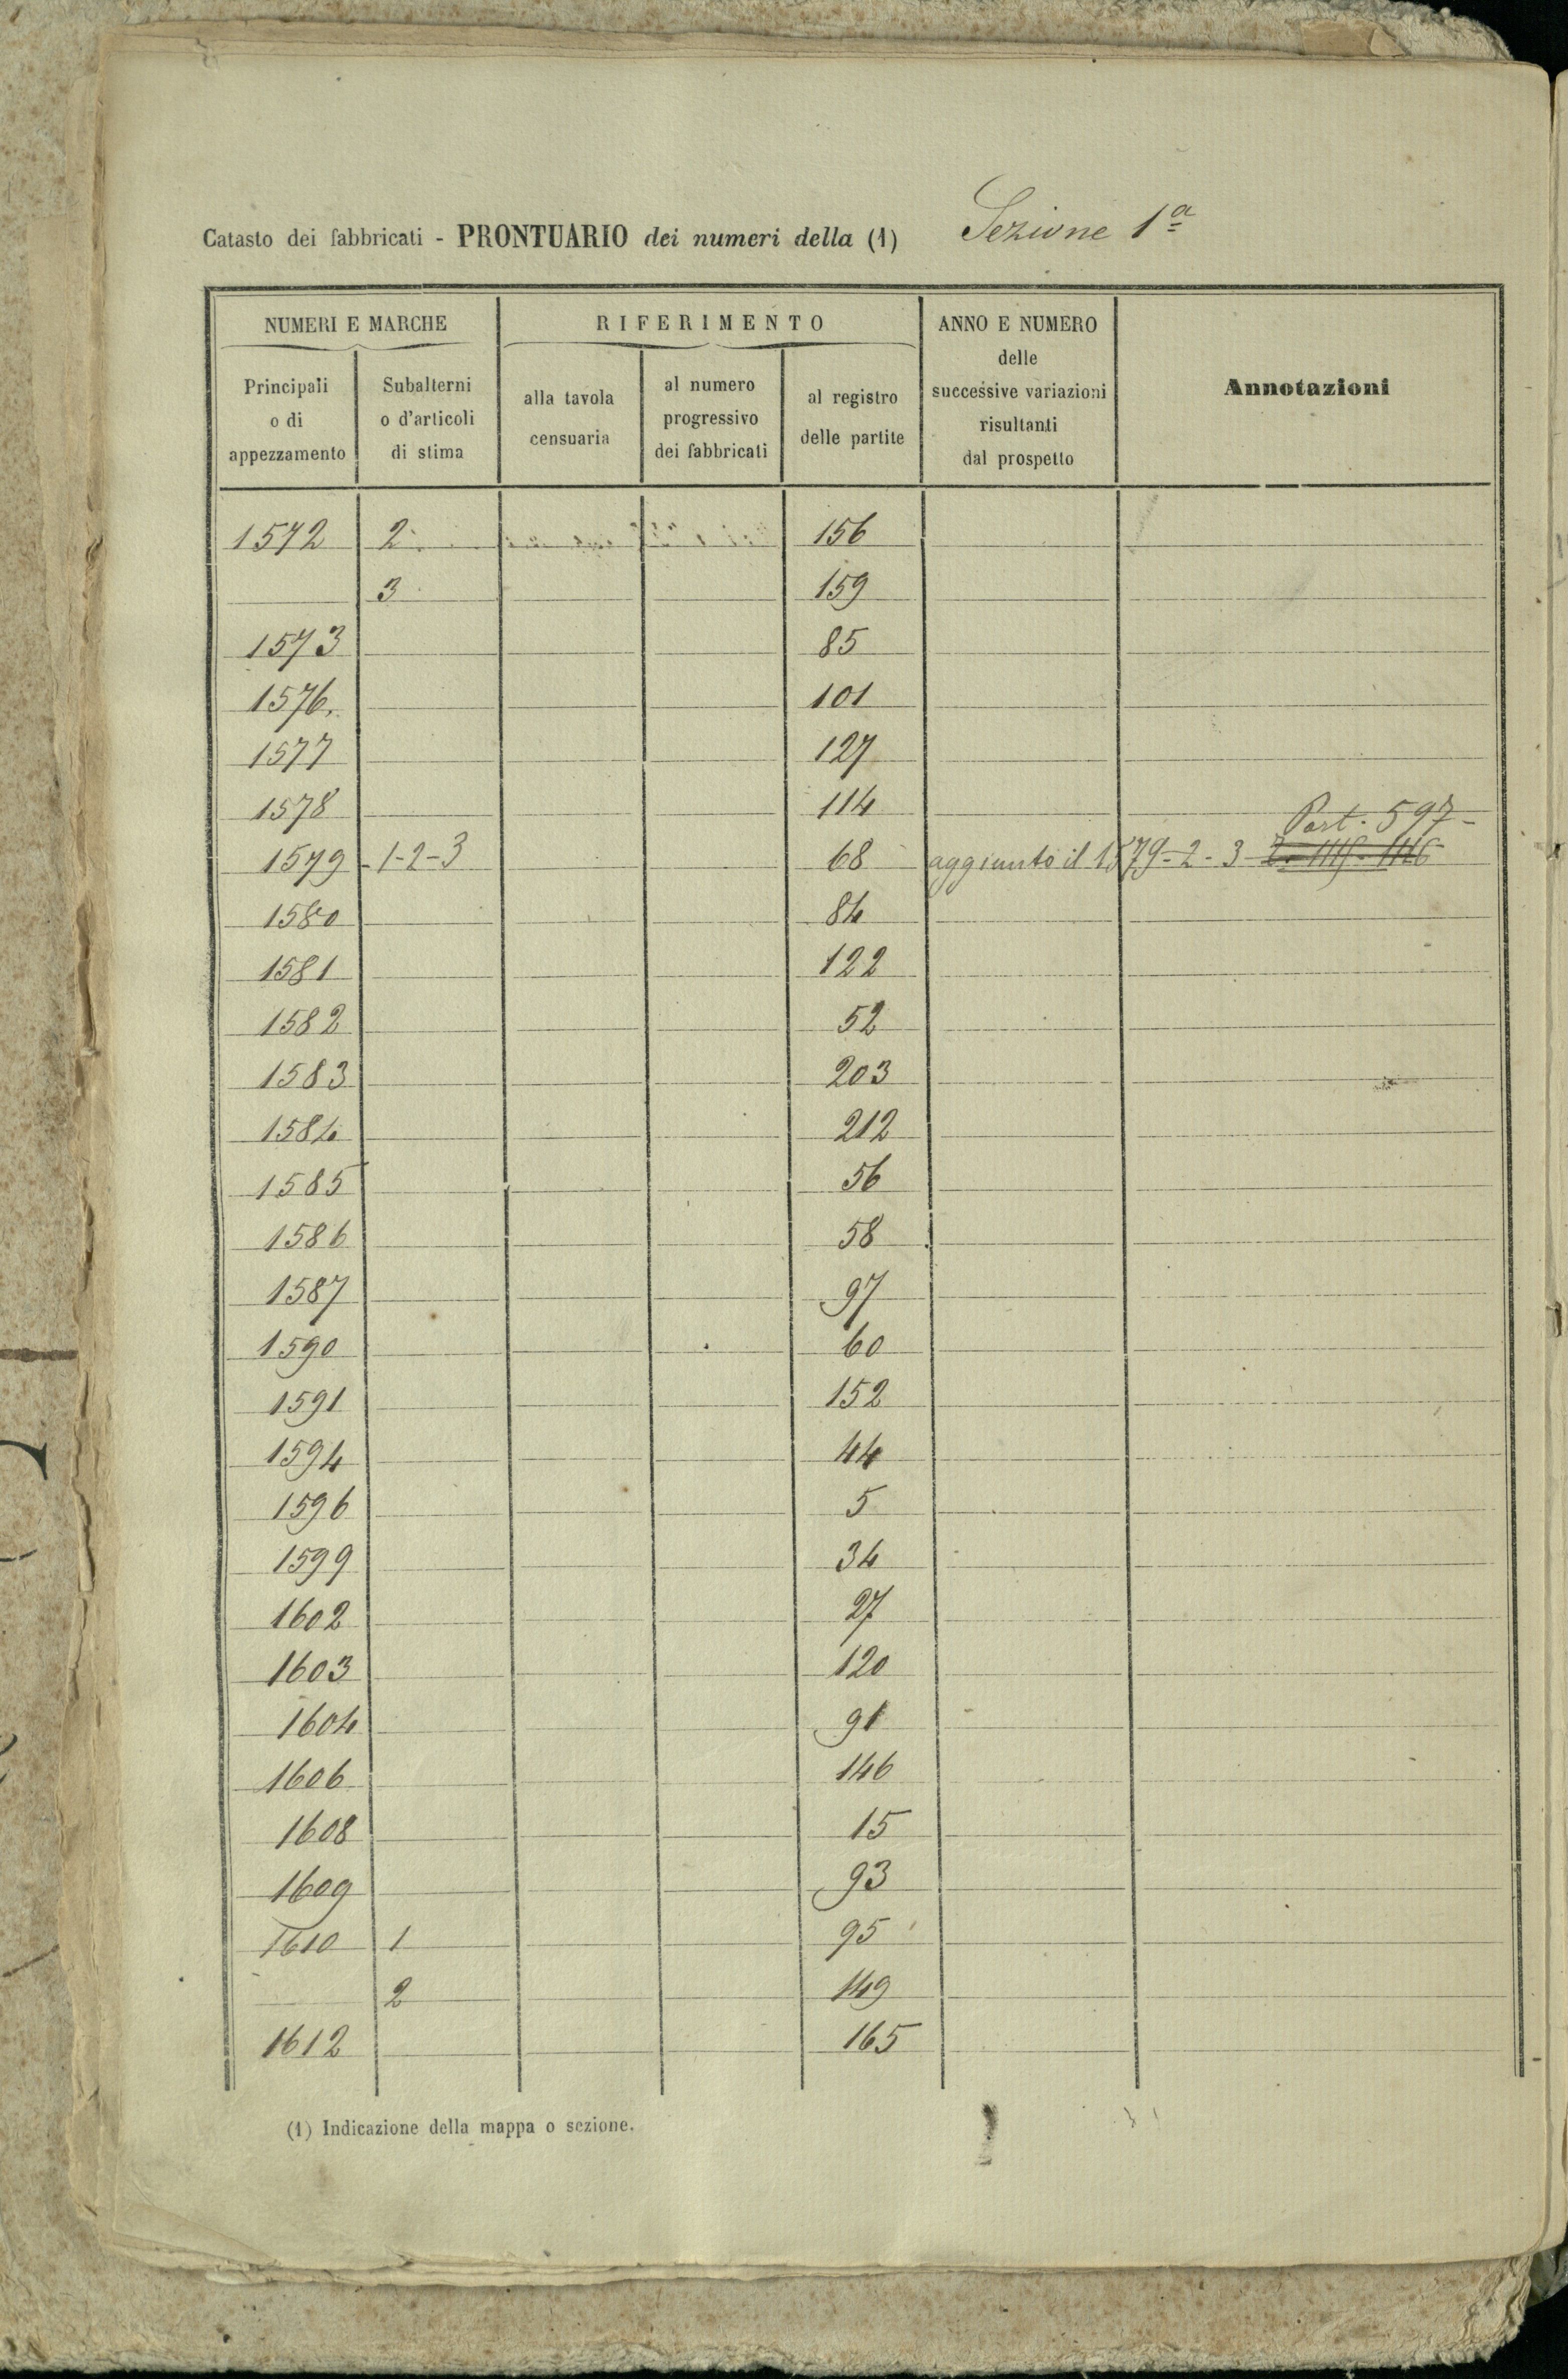 Catasto dei fabbricati - PRONTUARIO dei numeri della (1) Sezione 1ª
NUMERI E MARCHE
RIFERIMENTO
ANNO E NUMERO
delle
successive variazioni
risultanti
dal prospetto
Annotazioni
Principali
o di
appezzamento
Subalterni
o d'articoli
di stima
alla tavola
censuaria
al numero
progressivo
dei fabbricati
al registro
delle partite
1572 2 156
3 159
1573 85
1576. 101
1577 127
1578 114
Part. 597-
1579 - 1-2-3 68 aggiunto il 1579-2-3
1580 84
1581 122
1582 52
1583 203
1584 212
1585 56
1586 58
1587 97
1590 60
1591 152
1594 44
1596 5
1599 34
1602 27
1603 120
1604 91
1606 146
1608 15
1609 93
1610 1 95
2 149
1612 165
(1) Indicazione della mappa o sezione.